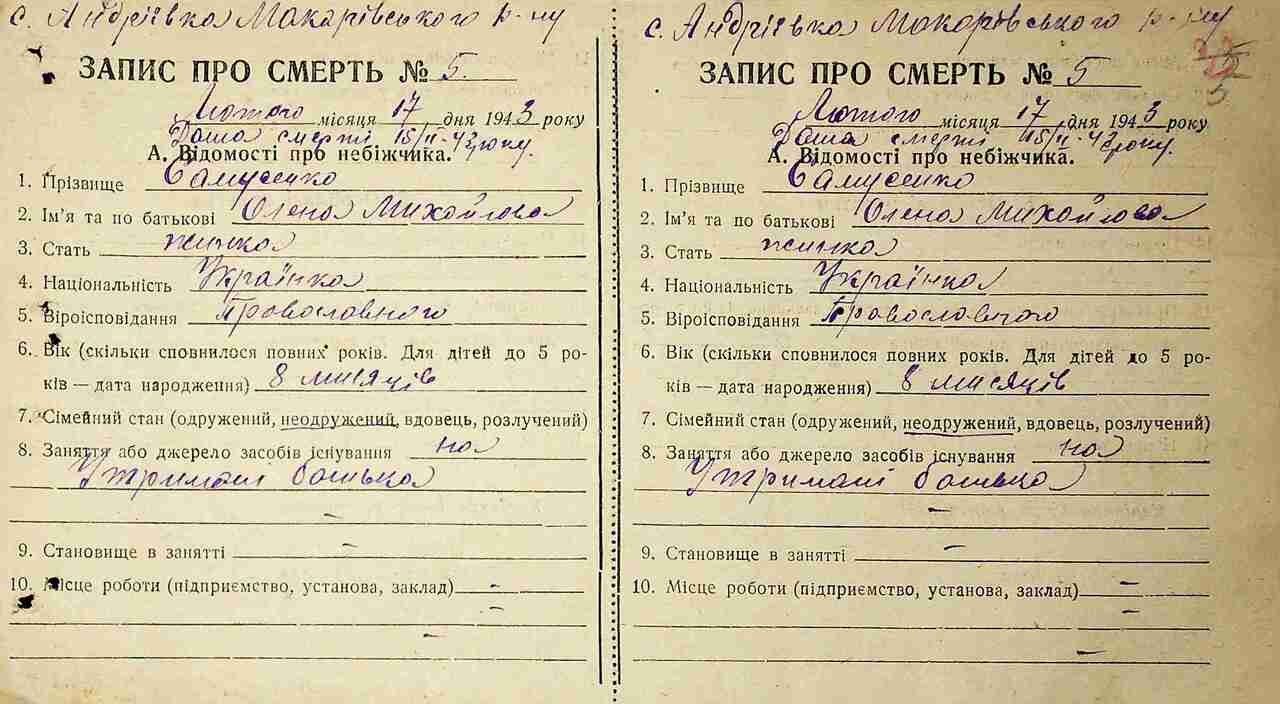 с. Андріївка Макарівського р-ну
ЗАПИС ПРО СМЕРТЬ № 5.
Лютого місяця 17, дня 1943 року
Дата смерті 15/II-43 року.
А. Відомості про небіжчика.
1. Прізвище Самусенко
2. Ім'я та по батькові Олена Михайлова
3. Стать жинка
4. Національність Українка
5. Віроісповідання Православного
6. Вік (скільки сповнилося повних років. Для дітей до 5 ро-
ків — дата народження) 8 мисяців
7. Сімейний стан (одружений, неодружений, вдовець, розлучений)
8. Заняття або джерело засобів існування на
Утримані батька
–
9. Становище в занятті –
10. Місце роботи (підприємство, установа, заклад) –
–
–
с. Андріївка Макарівського р-ну
ЗАПИС ПРО СМЕРТЬ № 5
Лютого місяця 17, дня 1943 року
Дата смерті 15/II-43 року.
А. Відомості про небіжчика.
1. Прізвище Самусенко
2. Ім'я та по батькові Олена Михайлова
3. Стать жинка
4. Національність Українка
5. Віроісповідання Православного
6. Вік (скільки сповнилося повних років. Для дітей до 5 ро-
ків — дата народження) 8 мисяців
7. Сімейний стан (одружений, неодружений, вдовець, розлучений)
8. Заняття або джерело засобів існування на
Утримані батька
–
9. Становище в занятті –
10. Місце роботи (підприємство, установа, заклад) –
–
–